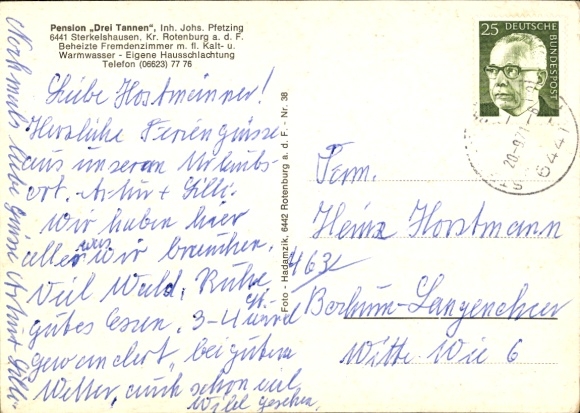 Pension „Drei Tannen“, Inh. Johs. Pfetzing
6441 Sterkelshausen, Kr. Rotenburg a. d. F.
Beheizte Fremdenzimmer m. fl. Kalt- u.
Warmwasser - Eigene Hausschlachtung
Telefon (06623) 77 76
Liebe Horstmänner!
Herzliche Feriengrüsse
aus unserem Urlaubs-
ort. Artur + Lilli.
Wir haben hier
alles was wir brauchen.
Viel Wald, Ruhe,
gutes Essen. 3-4 Std.
gewandert, bei gutem
Wetter, auch schon viel
Wild gesehen.
Nochmals liebe Grüsse Artur + Lilli
Foto - Hadamzik, 6442 Rotenburg a. d. F. - Nr. 38
25 DEUTSCHE BUNDESPOST
6441
20-9.71
Fam.
Heinz Horstmann
463
Bochum-Langendreer
Witte Wie 6